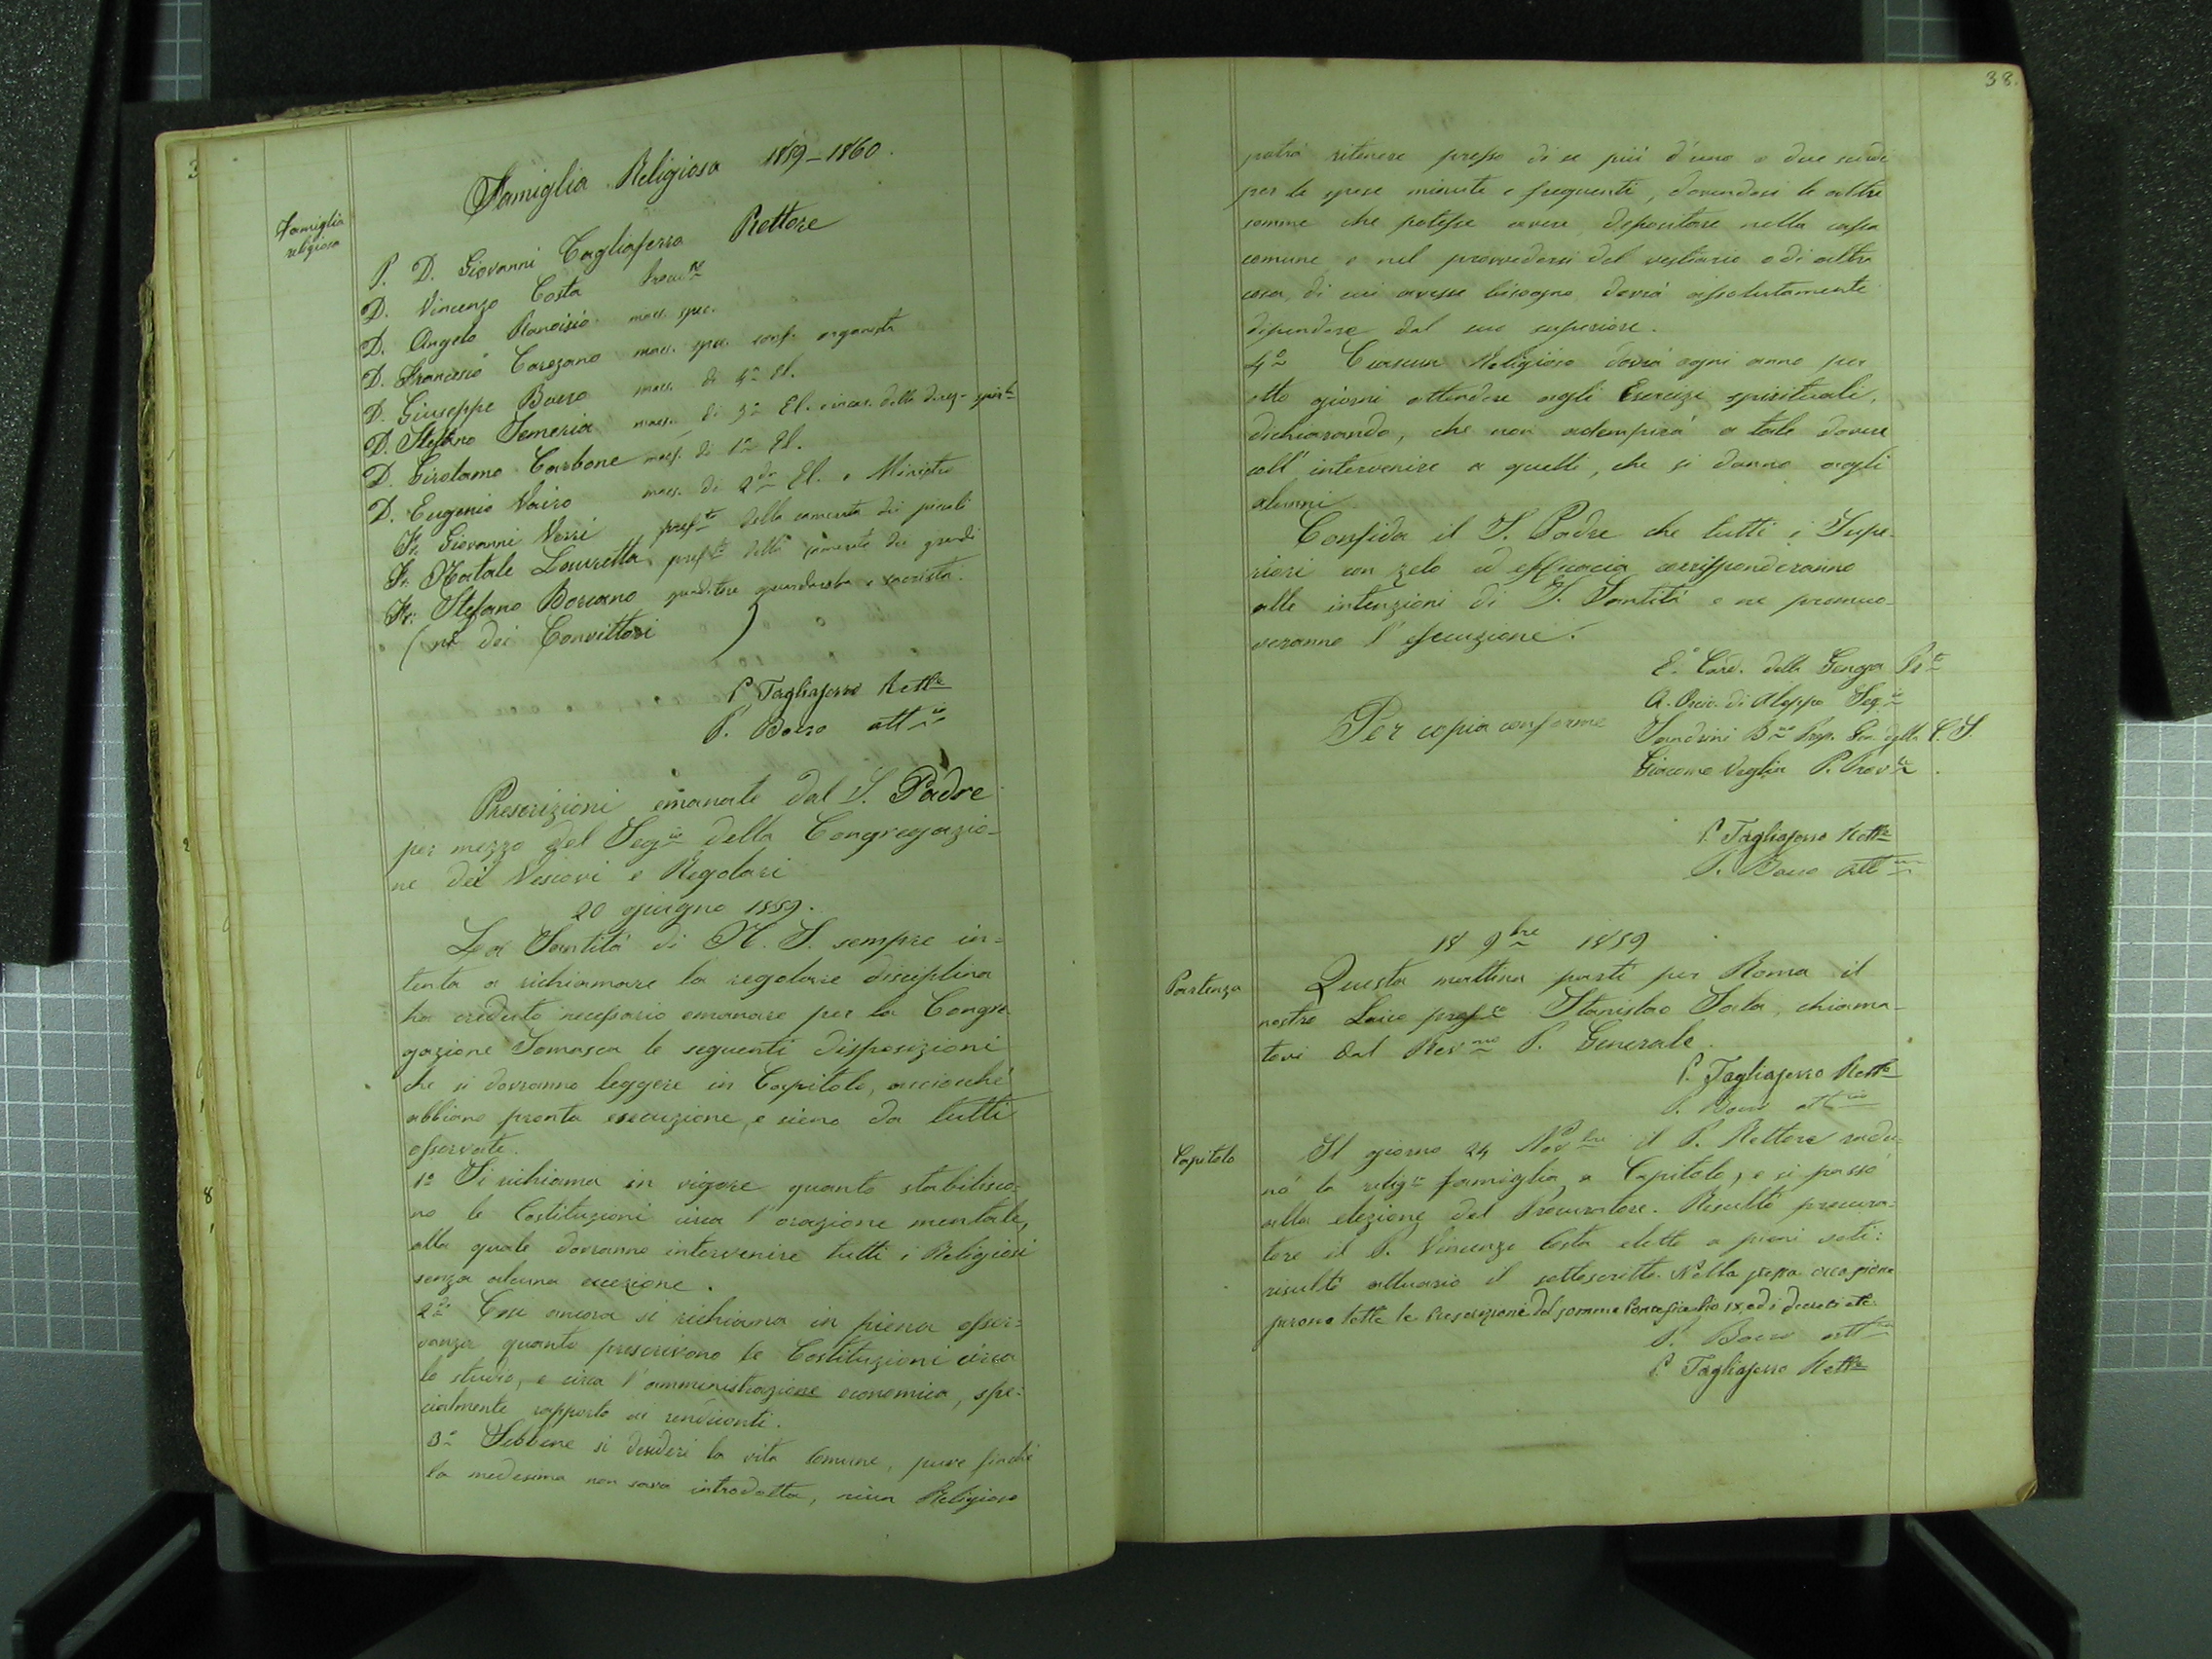 Famiglia Religiosa 1859-1860.
Famiglia
religiosa
P. D. Giovanni Tagliaferro Rettore
D. Vincenzo Costa Procu.re
D. Angelo Ranoisio maes. spec.
D. Francesco Carozano maes. spec. conf. organista
D. Giuseppe Boero maes. di 4.a El.
D. Stefano Semeria maes. di 3.a El. incar. della direz.e spir.le
D. Girolamo Carbone maes. di 1.a El.
D. Eugenio Vairo maes. di 2.da El. e Ministro
Fr. Giovanni Verri pref.to della camerata dei piccoli
Fr. Natale Lauretta pref.to della camerata dei grandi
Fr. Stefano Borcano guardaroba e sacrista.
(n.o dei Convittori )
P. Tagliaferro Rett.re
P. Boero att.io
Prescrizioni emanate dal S. Padre
per mezzo del Seg.io della Congregazio-
ne dei Vescovi e Regolari
20 giugno 1859.
La Santità di N. S. sempre in-
tenta a richiamare la regolare disciplina
ha creduto necessario emanare per la Congre
gazione Somasca le seguenti disposizioni
che si dovranno leggere in Capitolo, acciocché
abbiano pronta esecuzione, e sieno da tutti
osservate.
1.o Si richiama in vigore quanto stabilisco-
no le Costituzioni circa l'orazione mentale,
alla quale dovranno intervenire tutti i Religiosi
senza alcuna eccezione.
2.do Così ancora si richiama in piena osser-
vanza quanto prescrivono le Costituzioni circa
lo studio, e circa l'amministrazione economica, spe-
cialmente rapporto ai rendiconti.
3.o Sebbene si desideri la vita comune, pure finché
la medesima non sarà introdotta, niun Religioso
38.
potrà ritenere presso di se più d'uno o due scudi
per le spese minute e frequenti, dovendosi le altre
somme che potesse avere, depositare nella cassa
comune e nel provvedersi del vestiario e di altra
cosa, di cui avesse bisogno, dovrà assolutamente
dipendere dal suo superiore.
4.o Ciascun Religioso dovrà ogni anno per
otto giorni attendere agli Esercizi spirituali,
dichiarando, che non adempirà a tale dovere
coll'intervenire a quelli, che si danno agli
alunni.
Confida il S. Padre che tutti i Supe-
riori con zelo ed efficacia corrisponderanno
alle intenzioni di S. Santità e ne promuo-
veranno l'esecuzione.
E. Card. della Genga Pr.to
A. Arciv. di Aleppo Seg.io
Per copia conforme Sandrini B.no Prep. Gen. della C. S.
Giacomo Veglia P. Prov.le
P. Tagliaferro Rett.re
P. Boero att.io
18 9.bre 1859
Partenza
Questa mattina partì per Roma il
nostro Laico prof.so Stanislao Sala, chiama-
tovi dal Rev.mo P. Generale.
P. Tagliaferro Rett.re
P. Boero att.io
Capitolo
Il giorno 24 Nov.bre il P. Rettore radu-
nò la relig.sa famiglia a Capitolo, e si passò
alla elezione del Procuratore. Risultò procura-
tore il P. Vincenzo Costa eletto a pieni voti:
risultò attuario il sottoscritto. Nella stessa occasione
furono lette le Prescrizioni del sommo Pontefice Pio IX, ed i decreti etc.
P. Boero att.io
P. Tagliaferro Rett.re